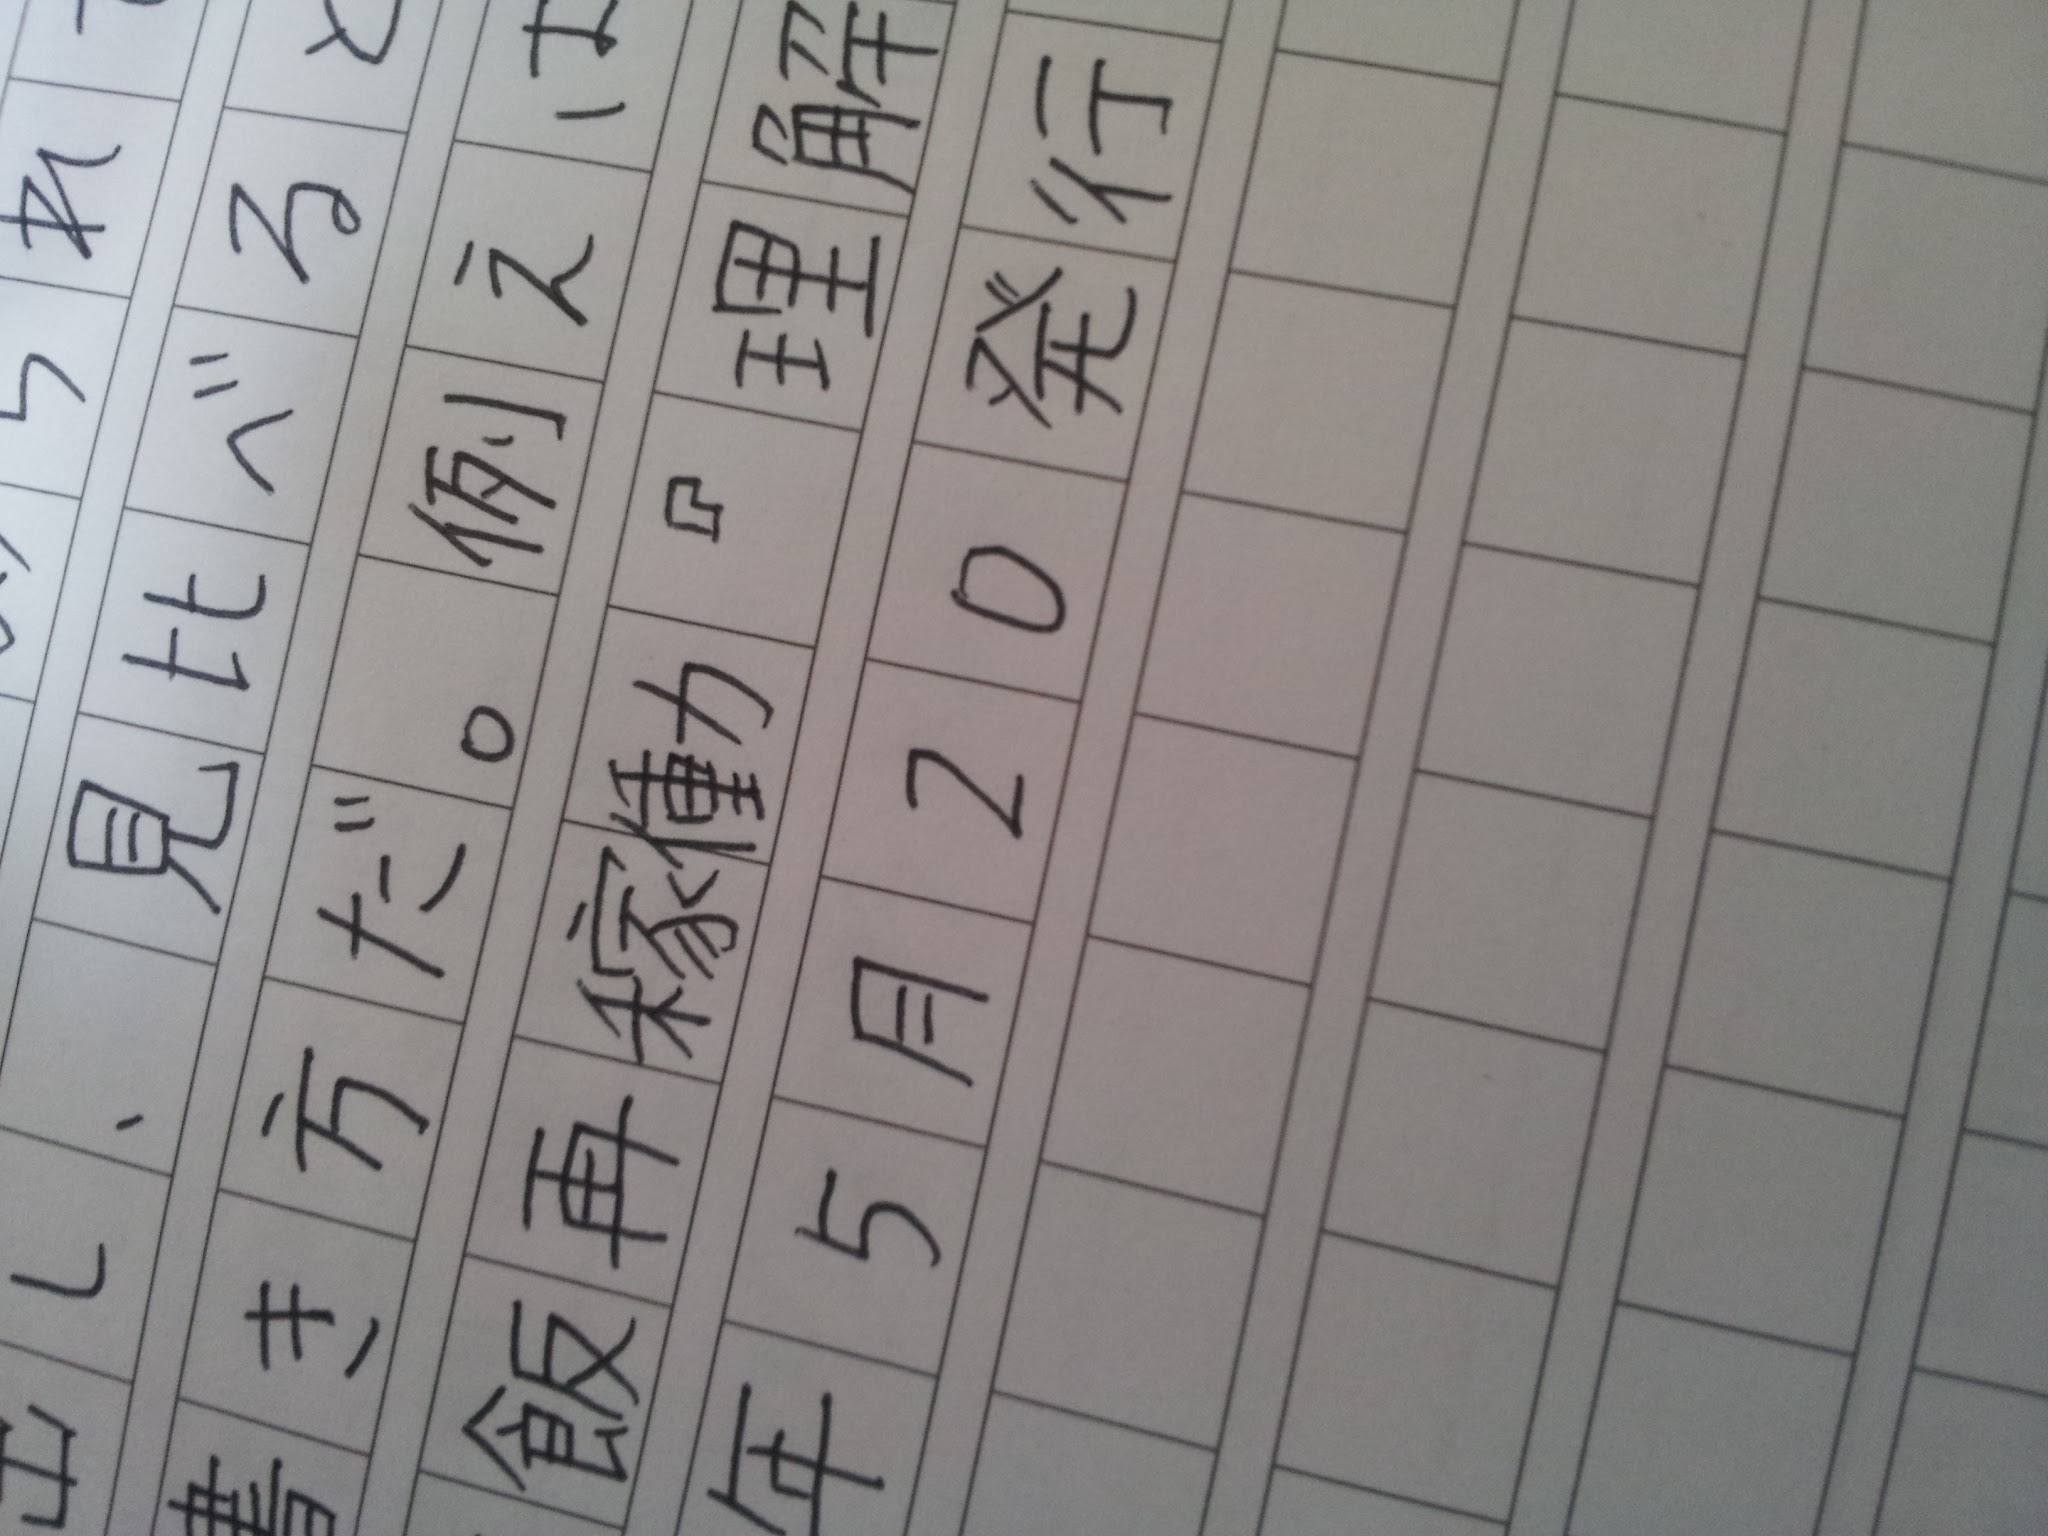 られて
出し、見比べると
書き方だ。例えば
飯再稼働『理解
年5月20発行